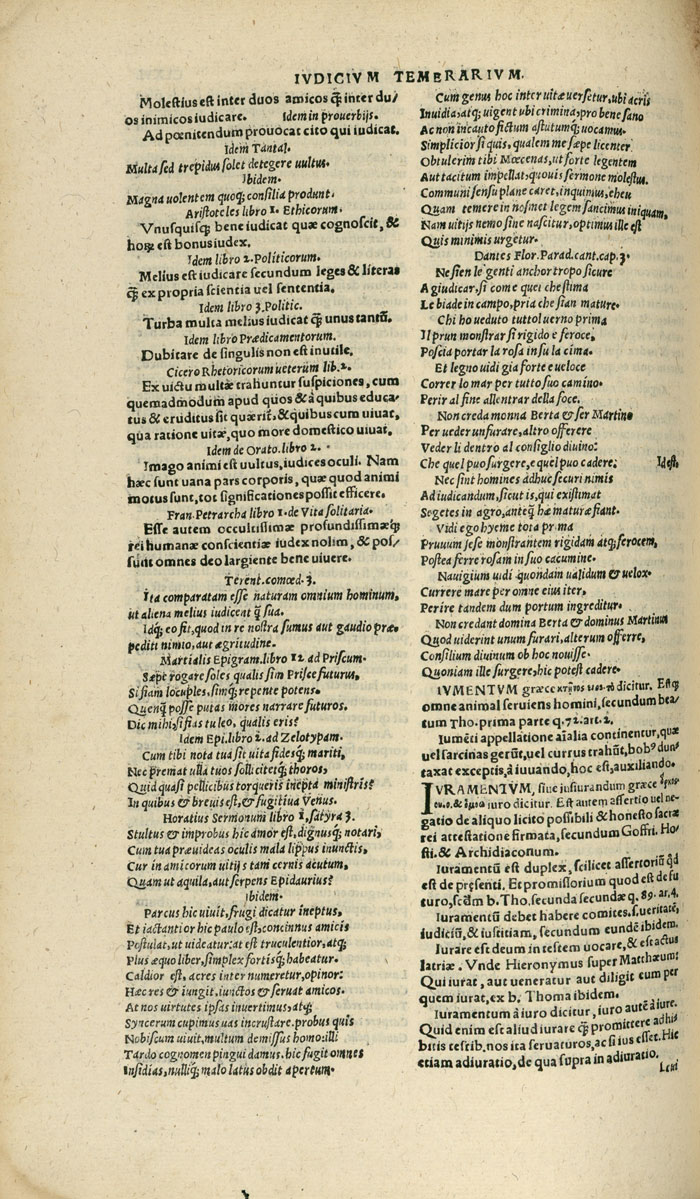 IVDICIVM TEMERARIVM.
Molestius est inter duos amicos q̃ inter du/
os inimicos iudicare. Idem in prouerbijs.
Ad pœnitendum prouocat cito qui iudicat.
Idem Tantal.
Multa sed trepidus solet detegere uultus.
Ibidem.
Magna uolentem quoq; consilia produnt.
Aristoteles libro 1. Ethicorum.
Vnusquisq; bene iudicat quæ cognoscit, &
horũ est bonus iudex.
Idem libro 2. Politicorum.
Melius est iudicare secundum leges & literas
q̃ ex propria scientia uel sententia.
Idem libro 3. Politic.
Turba multa melius iudicat q̃ unus tantũ.
Idem libro Prædicamentorum.
Dubitare de singulis non est inutile.
Cicero Rhetoricorum ueterum lib. 2.
Ex uictu multæ trahuntur suspiciones, cum
quemadmodum apud quos & à quibus educa/
tus & eruditus sit quærit̃, & quibus cum uiuat,
qua ratione uitæ, quo more domestico uiuat.
Idem de Orato. libro 2.
Imago animi est uultus, iudices oculi. Nam
hæc sunt uana pars corporis, quæ quod animi
motus sunt, tot significationes possit efficere.
Fran. Petrarcha libro 1. de Vita solitaria.
Esse autem occultissimæ profundissimæq;
rei humanæ conscientiæ iudex nolim, & pos/
sunt omnes deo largiente bene uiuere.
Terent. comœd. 3.
Ita comparatam esse naturam omnium hominum,
ut aliena melius iudicent q̃ sua.
Idq; eo fit, quod in re nostra sumus aut gaudio præ/
pediti nimio, aut ægritudine.
Martialis Epigram. libro 12 ad Priscum.
Sæpe rogare soles qualis sim Prisce futurus,
Si fiam locuples, simq; repente potens.
Quenq̃ posse putas mores narrare futuros.
Dic mihi, si fias tu leo, qualis eris?
Idem Epi. libro 2. ad Zelotypam.
Cum tibi nota tua sit uita fidesq; mariti,
Nec premat ulla tuos sollicitetq; thoros,
Quid quasi pellicibus torqueris inepta ministris?
In quibus & breuis est, & fugitiua Venus.
Horatius Sermonum libro 1, satyra 3.
Stultus & improbus hic amor est, dignusq; notari,
Cum tua præuideas oculis mala lippus inunctis,
Cur in amicorum uitijs tam cernis acutum,
Quam ut aquila, aut serpens Epidaurius?
Ibidem.
Parcus hic uiuit, frugi dicatur ineptus,
Et iactantior hic paulo est, concinnus amicis
Postulat, ut uideatur: at est truculentior, atq;
Plus æquo liber, simplex fortisq; habeatur.
Caldior est, acres inter numeretur, opinor:
Hæc res & iungit, iunctos & seruat amicos.
At nos uirtutes ipsas inuertimus, atq;
Syncerum cupimus uas incrustare. probus quis
Nobiscum uiuit, multum demissus homo: illi
Tardo cognomen pingui damus. hic fugit omnes
Insidias, nulliq; malo latus obdit apertum.
Cum genus hoc inter uitæ uersetur, ubi acris
Inuidia, atq; uigent ubi crimina, pro bene sano
Ac non incauto fictum astutumq; uocamus.
Simplicior si quis, qualem me sæpe licenter
Obtulerim tibi Mœcenas, ut forte legentem
Aut tacitum impellat, quouis sermone molestus.
Communi sensu plane caret, inquimus, eheu
Quam temere in nosmet legem sancimus iniquam,
Nam uitijs nemo sine nascitur, optimus ille est
Quis minimis urgetur.
Dantes Flor. Parad. cant. cap. 3.
Ne sien le genti anchor tropo sicure
A giudicar, si come quei che stima
Le biade in campo, pria che sian mature.
Chi ho ueduto tuttol uerno prima
Il prun monstrar si rigido e feroce,
Poscia portar la rosa in su la cima.
Et legno uidi gia forte e ueloce
Correr lo mar per tutto suo camino.
Perir al fine allentrar della foce.
Non creda monna Berta & ser Martino
Per ueder un furare, altro offerere
Veder li dentro al consiglio diuino:
Che quel puo surgere, e quel puo cadere: Id est.
Nec sint homines adhuc securi nimis
Ad iudicandum, sicut is, qui existimat
Segetes in agro, anteq̃ hæ maturæ fiant.
Vidi ego hyeme tota prima
Pruuum sese monstrantem rigidam atq; ferocem,
Postea ferre rosam in suo cacumine.
Nauigium uidi quondam ualidum & uelox.
Currere mare per omne eius iter,
Perire tandem dum portum ingreditur.
Non credant domina Berta & dominus Martinus
Quod uiderint unum furari, alterum offerre,
Consilium diuinum ob hoc nouisse.
Quoniam ille surgere, hic potest cadere.
IVMENTVM græce dicitur. Estq;
omne animal seruiens homini, secundum bea/
tum Tho. prima parte q. 72. art. 2.
Iumẽti appellatione aĩalia continentur, quæ
uel sarcinas gerũt, uel currus trahũt, bob⁹ dun/
taxat exceptis, à iuuando, hoc est, auxiliando.
IVRAMENTVM, siue iusiurandum græce
iuro dicitur. Est autem assertio uel ne/
gatio de aliquo licito possibili & honesto sacræ
rei attestatione firmata, secundum Goffri. Ho/
sti. & Archidiaconum.
Iuramentũ est duplex, scilicet assertoriũ qd
est de pręsenti. Et promissorium quod est de fu
turo, scd̃m b. Tho. secunda secundæ q. 89. ar. 4.
Iuramentũ debet habere comites. s. ueritatẽ,
iudiciũ, & iustitiam, secundum eundẽ ibidem.
Iurare est deum in testem uocare, & est actus
latriæ. Vnde Hieronymus super Matthæum:
Qui iurat, aut ueneratur aut diligit eum per
quem iurat, ex b. Thoma ibidem.
Iuramentum à iuro dicitur, iuro autẽ à iure.
Quid enim est aliud iurare q̃ promittere adhi
bitis testib. nos ita seruaturos, ac si ius esset. Hic
etiam adiuratio, de qua supra in adiuratio.